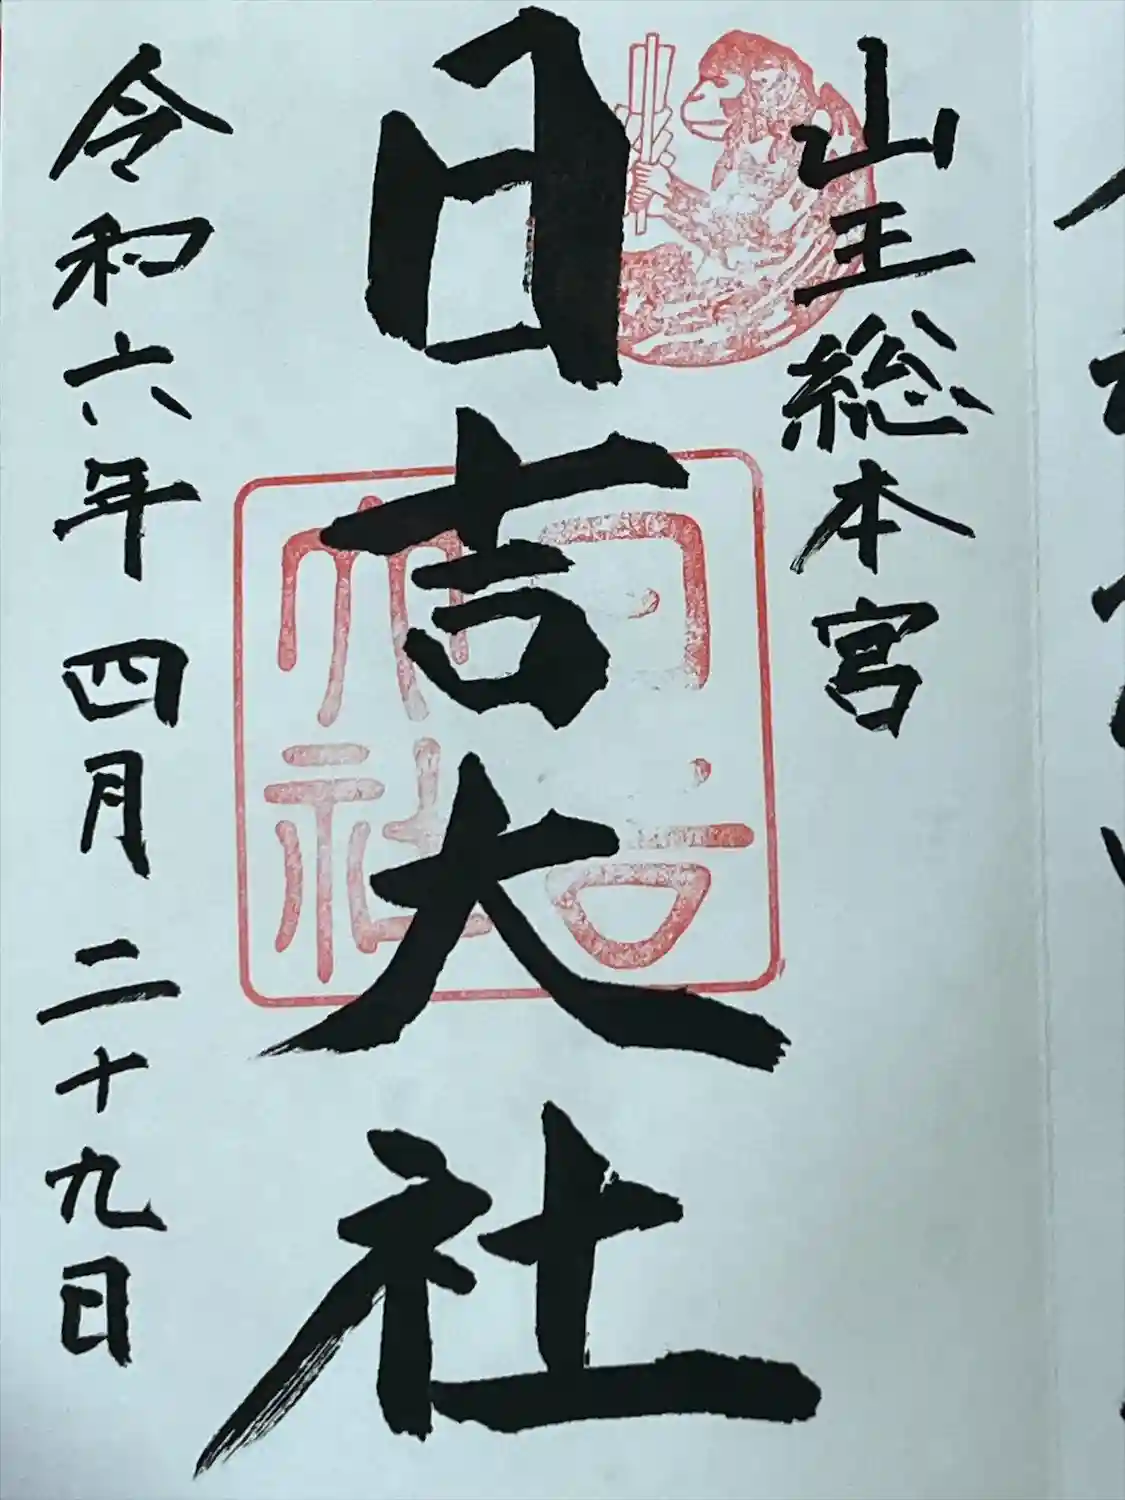 山王総本宮
日吉大社
日吉
大社
令和六年四月二十九日